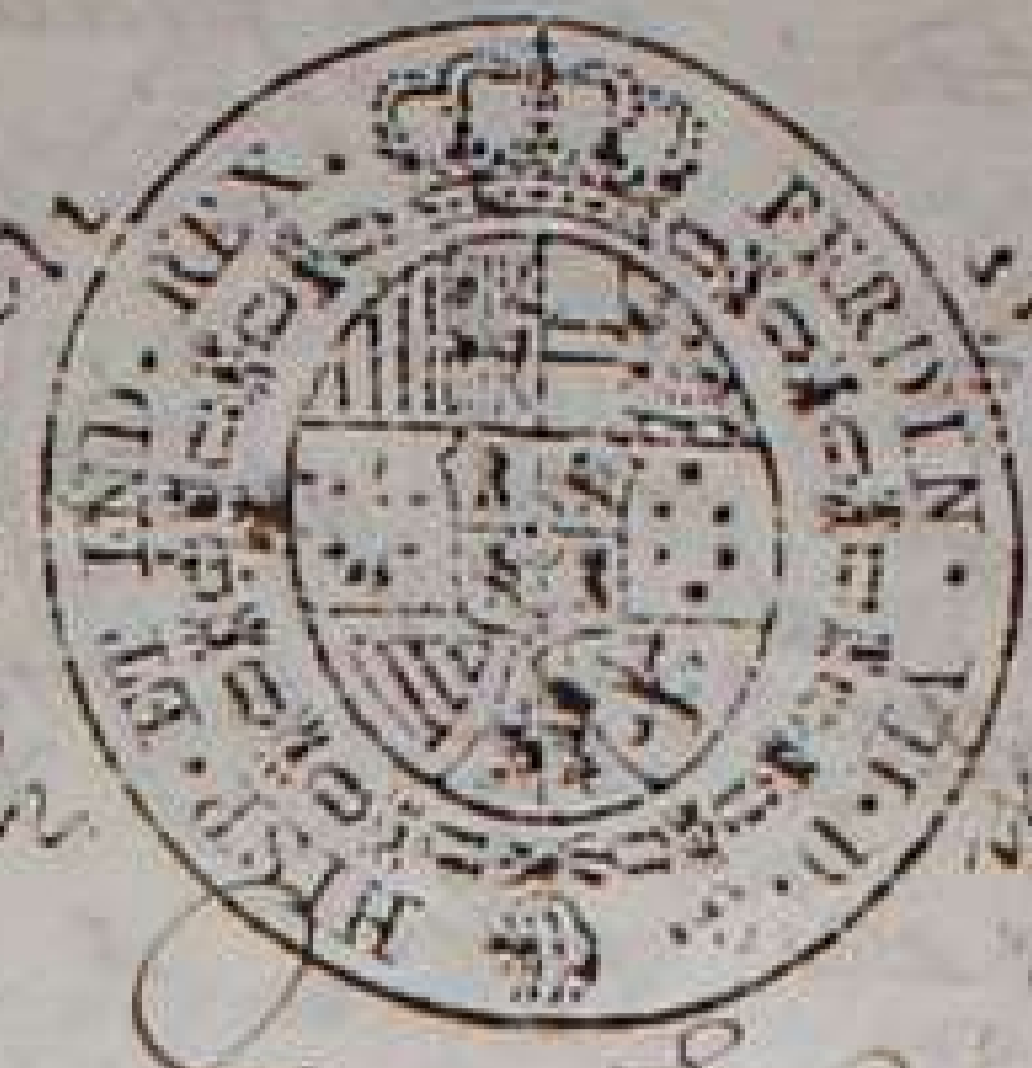 FERDIN. VII. D. HISP. ET IND. REX.